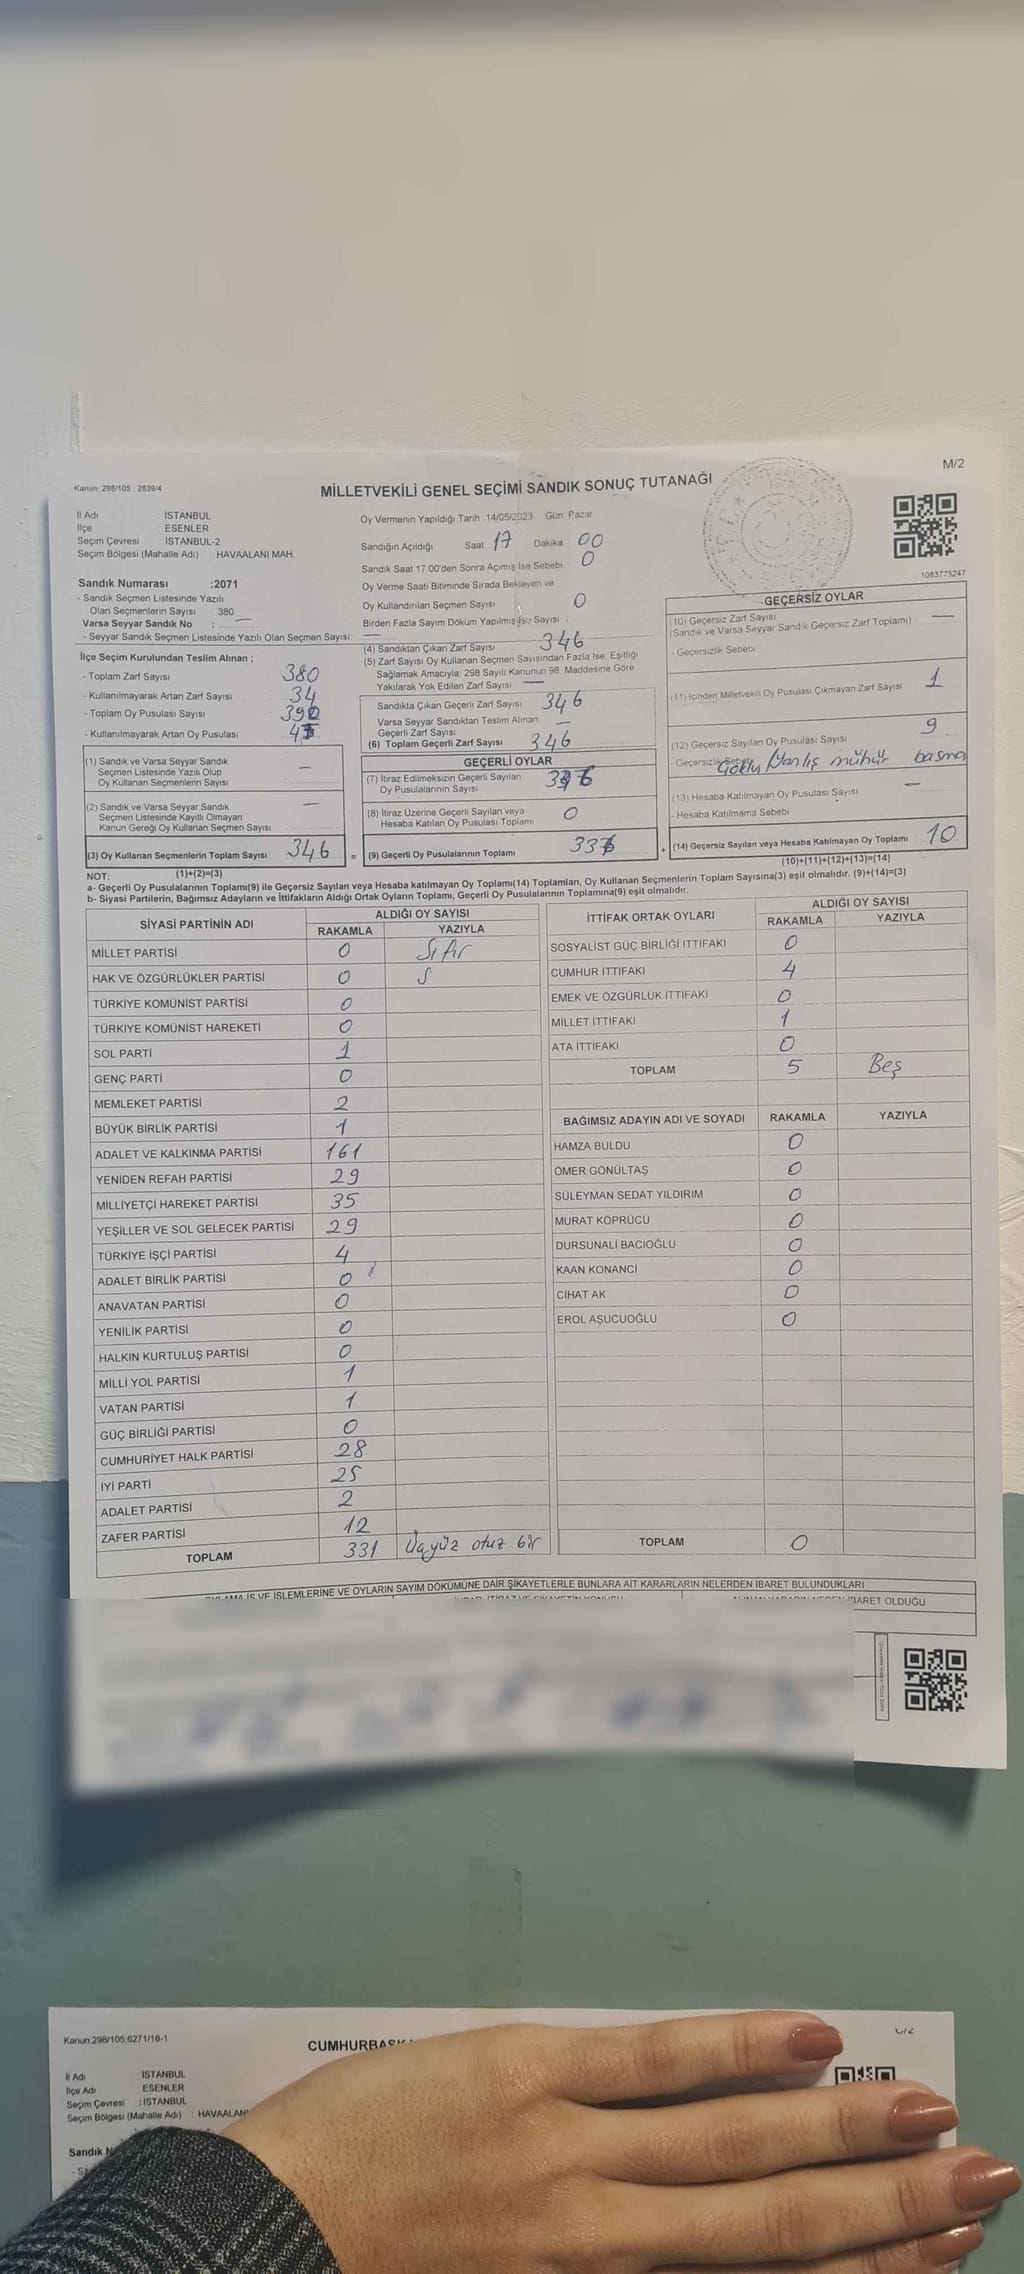 Kanun: 298/105 , 2839/4
M/2
MİLLETVEKİLİ GENEL SEÇİMİ SANDIK SONUÇ TUTANAĞI
İl Adı : İSTANBUL
İlçe : ESENLER
Seçim Çevresi : İSTANBUL-2
Seçim Bölgesi (Mahalle Adı) : HAVAALANI MAH.
Sandık Numarası :2071
- Sandık Seçmen Listesinde Yazılı
Olan Seçmenlerin Sayısı : 380
Varsa Seyyar Sandık No : —
- Seyyar Sandık Seçmen Listesinde Yazılı Olan Seçmen Sayısı: —
Oy Vermenin Yapıldığı Tarih : 14/05/2023 Gün: Pazar
Sandığın Açıldığı Saat 17 Dakika 00
Sandık Saat 17:00'den Sonra Açılmış İse Sebebi 0
Oy Verme Saati Bitiminde Sırada Bekleyen ve
Oy Kullandırılan Seçmen Sayısı 0
Birden Fazla Sayım Döküm Yapılmış İse Sayısı
1083775247
İlçe Seçim Kurulundan Teslim Alınan ;
- Toplam Zarf Sayısı 380
- Kullanılmayarak Artan Zarf Sayısı 34
- Toplam Oy Pusulası Sayısı
- Kullanılmayarak Artan Oy Pusulası
(1) Sandık ve Varsa Seyyar Sandık
Seçmen Listesinde Yazılı Olup
Oy Kullanan Seçmenlerin Sayısı —
(2) Sandık ve Varsa Seyyar Sandık
Seçmen Listesinde Kayıtlı Olmayan
Kanun Gereği Oy Kullanan Seçmen Sayısı —
(3) Oy Kullanan Seçmenlerin Toplam Sayısı 346
(1)+(2)=(3)
(4) Sandıktan Çıkan Zarf Sayısı 346
(5) Zarf Sayısı Oy Kullanan Seçmen Sayısından Fazla İse, Eşitliği
Sağlamak Amacıyla; 298 Sayılı Kanunun 98. Maddesine Göre
Yakılarak Yok Edilen Zarf Sayısı —
Sandıkta Çıkan Geçerli Zarf Sayısı 346
Varsa Seyyar Sandıktan Teslim Alınan
Geçerli Zarf Sayısı —
(6) Toplam Geçerli Zarf Sayısı 346
GEÇERLİ OYLAR
(7) İtiraz Edilmeksizin Geçerli Sayılan
Oy Pusulalarının Sayısı
(8) İtiraz Üzerine Geçerli Sayılan veya
Hesaba Katılan Oy Pusulası Toplamı 0
= (9) Geçerli Oy Pusulalarının Toplamı 336 +
GEÇERSİZ OYLAR
(10) Geçersiz Zarf Sayısı —
(Sandık ve Varsa Seyyar Sandık Geçersiz Zarf Toplamı)
- Geçersizlik Sebebi
(11) İçinden Milletvekili Oy Pusulası Çıkmayan Zarf Sayısı 1
(12) Geçersiz Sayılan Oy Pusulası Sayısı 9
- Geçersizlik Sebebi Çoklu / Yanlış mühür basma
(13) Hesaba Katılmayan Oy Pusulası Sayısı —
- Hesaba Katılmama Sebebi
(14) Geçersiz Sayılan veya Hesaba Katılmayan Oy Toplamı 10
(10)+(11)+(12)+(13)=(14)
NOT:
a- Geçerli Oy Pusulalarının Toplamı(9) ile Geçersiz Sayılan veya Hesaba katılmayan Oy Toplamı(14) Toplamları, Oy Kullanan Seçmenlerin Toplam Sayısına(3) eşit olmalıdır. (9)+(14)=(3)
b- Siyasi Partilerin, Bağımsız Adayların ve İttifakların Aldığı Ortak Oyların Toplamı, Geçerli Oy Pusulalarının Toplamına(9) eşit olmalıdır.
SİYASİ PARTİNİN ADI ALDIĞI OY SAYISI
RAKAMLA YAZIYLA
MİLLET PARTİSİ 0 Sıfır
HAK VE ÖZGÜRLÜKLER PARTİSİ 0 S
TÜRKİYE KOMÜNİST PARTİSİ 0
TÜRKİYE KOMÜNİST HAREKETİ 0
SOL PARTİ 1
GENÇ PARTİ 0
MEMLEKET PARTİSİ 2
BÜYÜK BİRLİK PARTİSİ 1
ADALET VE KALKINMA PARTİSİ 161
YENİDEN REFAH PARTİSİ 29
MİLLİYETÇİ HAREKET PARTİSİ 35
YEŞİLLER VE SOL GELECEK PARTİSİ 29
TÜRKİYE İŞÇİ PARTİSİ 4
ADALET BİRLİK PARTİSİ 0
ANAVATAN PARTİSİ 0
YENİLİK PARTİSİ 0
HALKIN KURTULUŞ PARTİSİ 0
MİLLİ YOL PARTİSİ 1
VATAN PARTİSİ 1
GÜÇ BİRLİĞİ PARTİSİ 0
CUMHURİYET HALK PARTİSİ 28
İYİ PARTİ 25
ADALET PARTİSİ 2
ZAFER PARTİSİ 12
TOPLAM 331 Üçyüz otuz bir
İTTİFAK ORTAK OYLARI ALDIĞI OY SAYISI
RAKAMLA YAZIYLA
SOSYALİST GÜÇ BİRLİĞİ İTTİFAKI 0
CUMHUR İTTİFAKI 4
EMEK VE ÖZGÜRLÜK İTTİFAKI 0
MİLLET İTTİFAKI 1
ATA İTTİFAKI 0
TOPLAM 5 Beş
BAĞIMSIZ ADAYIN ADI VE SOYADI RAKAMLA YAZIYLA
HAMZA BULDU 0
ÖMER GÖNÜLTAŞ 0
SÜLEYMAN SEDAT YILDIRIM 0
MURAT KÖPRÜCÜ 0
DURSUNALİ BACIOĞLU 0
KAAN KONANCİ 0
CİHAT AK 0
EROL AŞUCUOĞLU 0
TOPLAM 0
İŞ VE İŞLEMLERİNE VE OYLARIN SAYIM DÖKÜMÜNE DAİR ŞİKAYETLERLE BUNLARA AİT KARARLARIN NELERDEN İBARET BULUNDUKLARI
İBARET OLDUĞU
Kanun:298/105;6271/18-1
CUMHURBAŞK
İl Adı İSTANBUL
İlçe Adı ESENLER
Seçim Çevresi : İSTANBUL
Seçim Bölgesi (Mahalle Adı) : HAVAALAN
Sandık N